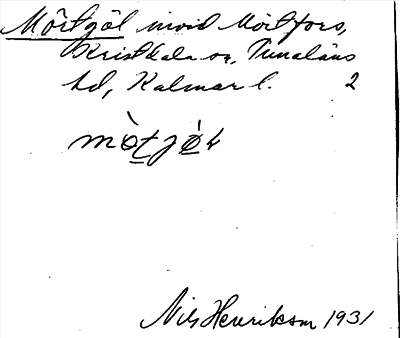 Mörtgöl invid Mörtfors,
Kristdala sn, Tunaläns
hd, Kalmar l. 2
Nils Henrikson 1931